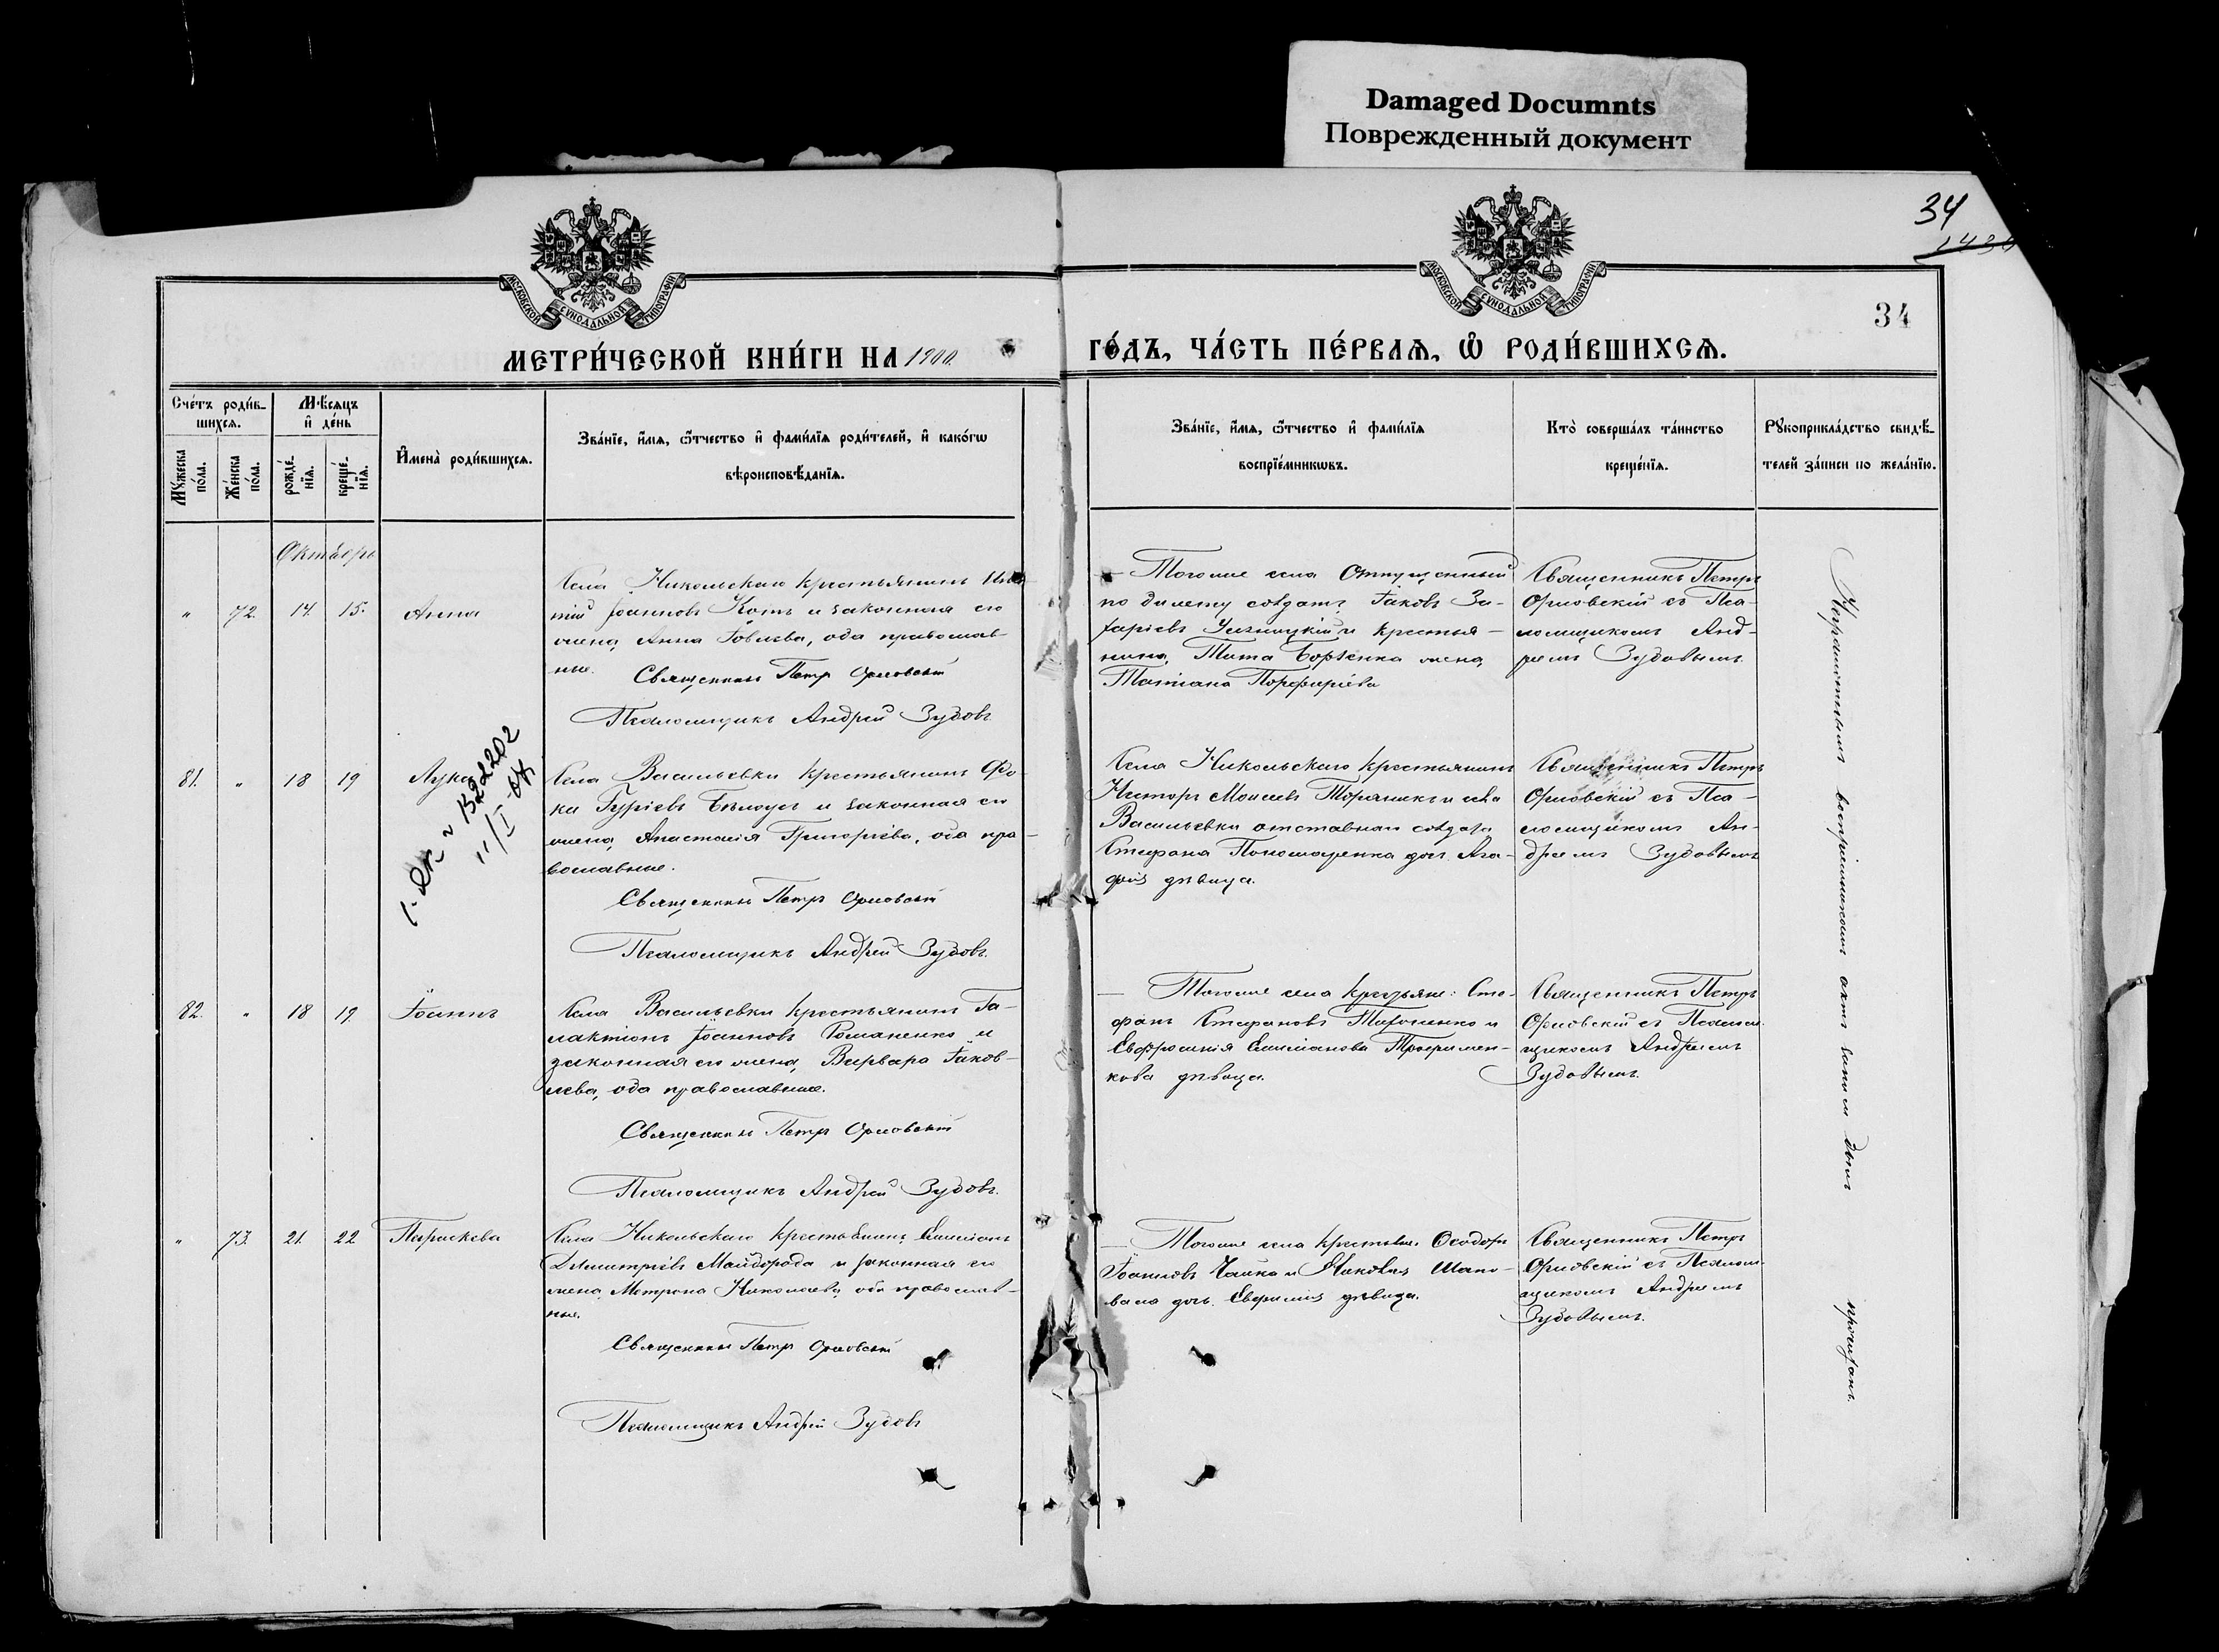 Damaged Documnts
Поврежденный документ
34
34
МОСКОВСКОЙ СѴНОДАЛЬНОЙ ТИПОГРАФІИ
МОСКОВСКОЙ СѴНОДАЛЬНОЙ ТИПОГРАФІИ
МЕТРИ́ЧЕСКОЙ КНИ́ГИ НА 1900
ГО́ДЪ, ЧА́СТЬ ПЕ́РВАѦ, Ѽ РОДИ́ВШИХСѦ.
Сче́тъ роди́в-
шихсѧ.
Мꙋ́жеска по́ла.
Же́нска по́ла.
Мѣ́сѧцъ
и҆ де́нь
рожде́-
нїѧ.
креще́-
нїѧ.
И҆мена̀ роди́вшихсѧ.
Зва́нїе, и҆́мѧ, ѻ҆́тчество и҆ фамѵ́лїѧ роди́телей, и҆ како́гѡ
вѣроисповѣ́данїѧ.
Зва́нїе, и҆́мѧ, ѻ҆́тчество и҆ фами́лїѧ
воспрїе́мникѡвъ.
Кто̀ соверша́лъ та́инство
креще́нїѧ.
Рꙋкоприкла́дство свидѣ́-
телей за́писи по жела́нїю.
Октябрь
" 72. 14. 15. Анна
Села Никольскаго крестьянинъ
тій Іоанновъ Котъ и законная его
жена, Анна Іовлева, оба православ-
ные.
Священникъ Петръ Орловскій
Псаломщикъ Андрей Зубовъ
Тогоже села Отпущенный
по билету солдатъ Іаковъ За-
харіевъ и крестья-
нина, Тита жена,
Татіана Порфиріева
Священникъ Петръ
Орловскій съ Пса-
ломщикомъ Анд-
реемъ Зубовымъ.
81. " 18 19 Лука
1322202
11/I-
Села Васильевки крестьянинъ Фо-
ка Гуріевъ Бѣлоусъ и законная его
жена, Анастасія Григоріева, оба пра-
вославные.
Священникъ Петръ Орловскій
Псаломщикъ Андрей Зубовъ.
Села Никольскаго крестьянинъ
Несторъ Моисеевъ и села
Васильевки отставнаго солдата
Стефана Пономаренка доч. Ага-
фія дѣвица.
Священникъ Петръ
Орловскій съ Пса-
ломщикомъ Ан-
дреемъ Зубовымъ
82. " 18 19 Іоаннъ
Села Васильевки крестьянинъ Га-
лактіонъ Іоанновъ Романенко и
законная его жена, Варвара Іаков-
лева, оба православные.
Священникъ Петръ Орловскій
Псаломщикъ Андрей Зубовъ.
Тогоже села крестьяне: Сте-
фанъ Стефановъ Тихоненко и
Евфросинія Емиліанова Трофимен-
кова дѣвица.
Священникъ Петръ
Орловскій съ Псалом-
щикомъ Андреемъ
Зубовымъ.
" 73. 21. 22 Параскева
Села Никольскаго крестьянинъ Емиліанъ
Димитріевъ Майборода и законная его
жена, Матрона Николаева, оба православ-
ные.
Священникъ Петръ Орловскій
Псаломщикъ Андрей Зубовъ
Тогоже села крестьяне Ѳеодоръ
Іоанновъ Чайка и Іакова Шапо-
вала доч. Евфимія дѣвица.
Священникъ Петръ
Орловскій съ Псалом-
щикомъ Андреемъ
Зубовымъ.
Неграмотнымъ воспріемникамъ актъ записи былъ прочитанъ.